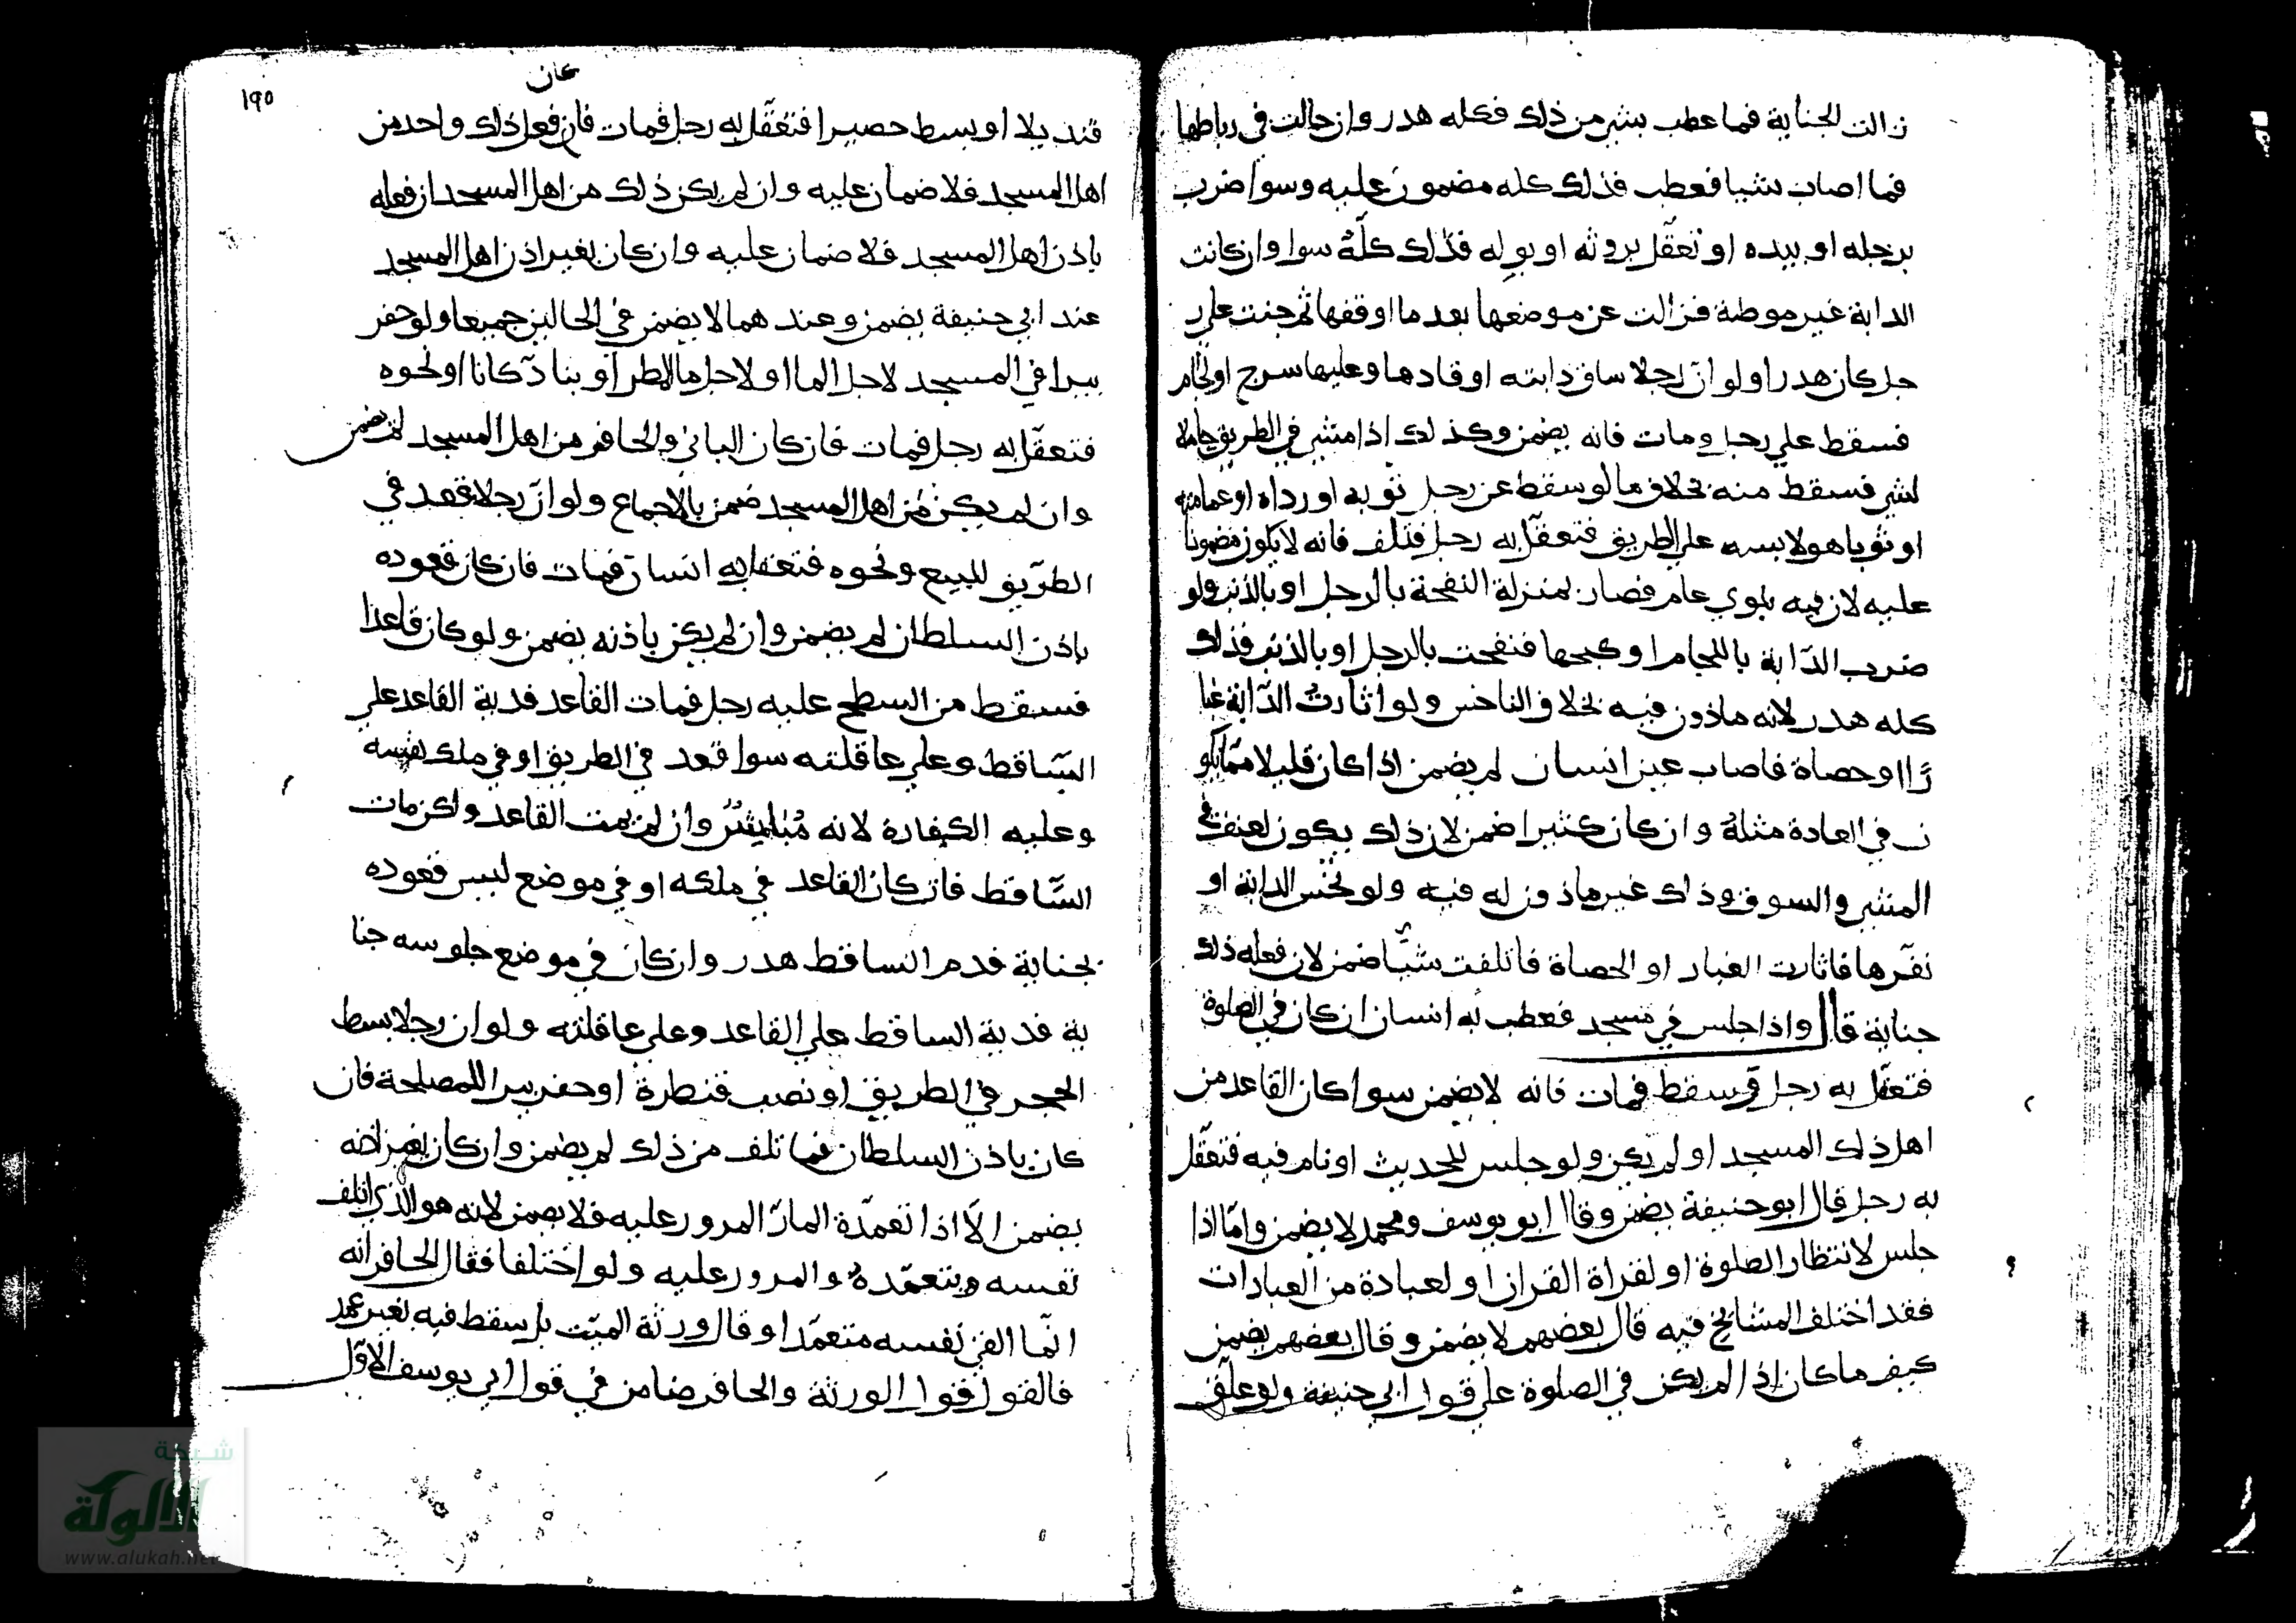 زالت الجناية فما عطب بشي من ذلك فكله هدر وان جالت في رباطها
فما اصاب شيا فعطب فذلك كله مضمون عليه وسوا ضرب
برجله او بيده او تعقل بروثه او بوله فذلك كله سوا وان كانت
الدابة غير موطة فزالت عن موضعها بعد ما اوقفها ثم جنت علي ر
جل كان هدرا ولو ان رجلا ساق دابته او قادها وعليها سرج او لجام
فسقط علي رجل ومات فانه يضمن وكذلك اذا مشي في الطريق حاملا
لشي فسقط منه بخلاف ما لو سقط عن رجل ثوبه او رداه او عمامته
او ثوبا هو لابسه علي الطريق فتعقل به رجل فتلف فانه لا يكون مضمونا
عليه لان فيه بلوي عام فصار بمنزلة النفحة بالرجل او بالذنب ولو
ضرب الدابة باللجام او كبحها فنفحت بالرجل او بالذنب فذلك
كله هدر لانه ماذون فيه بخلاف الناخس ولو اثارت الدابة غبا
را او حصاة فاصاب عين انسان لم يضمن اذا كان قليلا مما يكو
ن في العادة مثله وان كان كثيرا ضمن لان ذلك يكون لعنف في
المشي والسوق وذلك غير ماذون له فيه ولو نخس الدابة او
نفرها فاثارت الغبار او الحصاة فاتلفت شيا ضمن لان فعله ذلك
جناية قال واذا جلس في مسجد فعطب به انسان ان كان في الصلوة
فتعقل به رجل فسقط فمات فانه لا يضمن سوا كان القاعد من
اهل ذلك المسجد او لم يكن ولو جلس للحديث او نام فيه فتعقل
به رجل قال ابو حنيفة يضمن وقال ابو يوسف ومحمد لا يضمن واما اذا
جلس لانتظار الصلوة او لقراة القران او لعبادة من العبادات
فقد اختلف المشايخ فيه قال بعضهم لا يضمن وقال بعضهم يضمن
كيف ما كان اذا لم يكن في الصلوة علي قول ابي حنيفة ولو علق
١٩٥
كان
قنديلا او بسط حصيرا فتعقل به رجل فمات فان فعل ذلك واحد من
اهل المسجد فلا ضمان عليه وان لم يكن ذلك من اهل المسجد ان فعله
باذن اهل المسجد فلا ضمان عليه وان كان بغير اذن اهل المسجد
عند ابي حنيفة يضمن وعندهما لا يضمن في الحالين جميعا ولو حفر
بيرا في المسجد لاجل الما او لاجل ما المطر او بنا دكانا او نحوه
فتعقل به رجل فمات فان كان الباني والحافر من اهل المسجد لم يضمن
وان لم يكن من اهل المسجد ضمن بالاجماع ولو ان رجلا قعد في
الطريق للبيع ونحوه فتعقل به انسان فمات فان كان قعوده
باذن السلطان لم يضمن وان لم يكن باذنه يضمن ولو كان قاعدا
فسقط من السطح عليه رجل فمات القاعد فدية القاعد علي
الساقط وعلي عاقلته سوا قعد في الطريق او في ملك نفسه
وعليه الكفارة لانه مباشر وان لم يمت القاعد ولكن مات
الساقط فان كان القاعد في ملكه او في موضع ليس قعوده
بجناية فدم الساقط هدر وان كان في موضع جلوسه جنا
ية فدية الساقط علي القاعد وعلي عاقلته ولو ان رجلا بسط
الحجر في الطريق او نصب قنطرة او حفر بيرا للمصلحة فان
كان باذن السلطان فما تلف من ذلك لم يضمن وان كان بغير اذنه
يضمن الا اذا تعمدة المار المرور عليه فلا يضمن لانه هو الذي اتلف
نفسه وبتعمده والمرور عليه ولو اختلفا فقال الحافر انه
انما القي نفسه متعمدا وقال ورثة الميت بل سقط فيه بغير عمد
فالقول قول الورثة والحافر ضامن في قول ابي يوسف الاول
شبكة
الألوكة
www.alukah.net